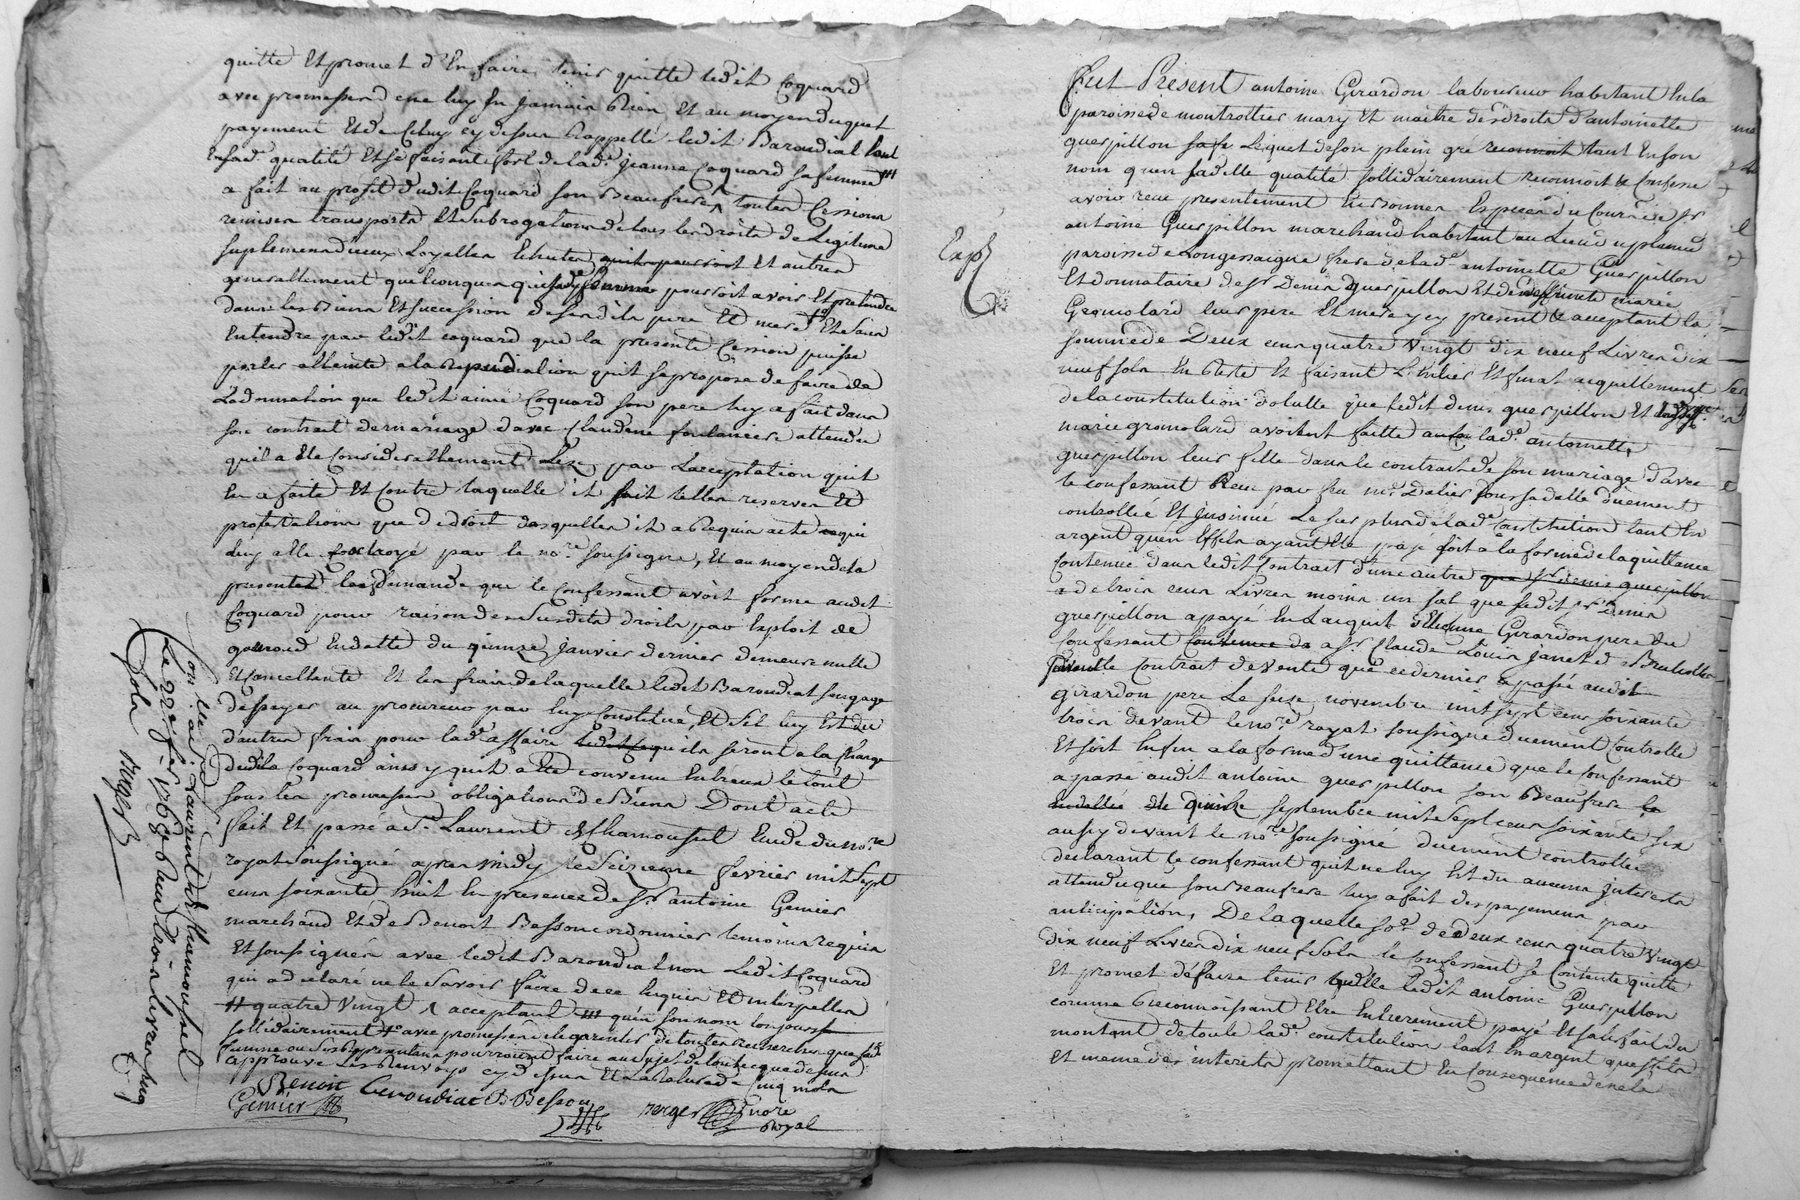 quitte Et promet d'En faire tenir quitte ledit Coquard
avec promesse de ne luy En jamais Rien Et au moyen duquel
payement Et de Celuy cy dessus Rappellé ledit Baroudial tant
En sad.e qualité Et se faisant fort de lad.e jeanne Coquard sa femme
a fait au profit dudit Coquard son Beaufrere toutes Cessions
remises transports Et subrogations de tous les droits de Legitime
suplement d'iceux Loyalles Echutes Et autres
generallement quelconques qui sad.e femme pourroit avoir Et pretendre
dans les Biens Et succession de sesdits pere Et mere Et sans
Entendre par ledit coquard que la presente Cession puisse
porter atteinte a la Repudiation qu'il se propose de faire de
La donnation que ledit aimé Coquard son pere luy a fait dans
son contrait de mariage d'avec Claudine foulanciere attendu
qu'il a Ete Considerablement Lezé par Lacceptation qu'il
En a faite Et Contre laquelle il fait telles reserves Et
protestations que de droit desquelles il a Requis acte
a luy Este octroyé par le no.re soussigné, Et au moyen de la
presente la demande que le Confessant avoit formé audit
Coquard pour raison desusdits droits par Exploit de
gouroud En datte du quinze janvier dernier demeure nulle
Et Cancellante Et les frais de laquelle ledit Baroudial s'engage
de payer au procureur par luy Constitué, Et s'il luy Est du
d'autres frais pour lad.e affaire ils seront a la Charge
dudit Coquard ainsy qu'il a Ete convenu Entreux le tout
sous les promesses obligations de Biens Dont acte
fait Et passé a S.t Laurent de Chamousset Etude du no.re
royal soussigné apres midy le seizieme fevrier mil sept
cens soixante huit En presence de S.r antoine Gemier
marchand Et de Benoit Besson cordonnier temoins requis
Et soussignés avec ledit Baroudial non Ledit Coquard
qui a declaré ne le savoir faire de ce Enquis Et interpellé
quatre vingt acceptant qu'en son nom toujours
sollidairement avec promesse de le garentir de toutes recherches que sad.e
femme ou ses Representans pourroient faire au sujet de tout ce que dessus
approuvé Les Renvoys cy dessus Et La Rature de Cinq mots
Benoit Baroudial B Besson
Gemier
merger nore
Royal
Con.lé a S.t Laurent de Chamousset
Le 22e fev. 1768 Reçu trois livres cinq
sols merger
Exp.é
Fut Présent antoine Girardon laboureur habitant En la
paroisse de montrottier mary Et maitre des droits d'antoinette
guerpillon sa fe Lequel de son plein gré tant En son
nom qu'en sadille qualité sollidairement reconnoit & Confesse
avoir reçu presentement En Bonnes Especes du Cours de S.r
antoine Guerpillon marchand habitant au Lieu du plamed
paroisse de Longessaigne frere de lad.e antoinette Guerpillon
Et donnataire de S.r Denis Guerpillon Et de deffunte marie
Gromolard leurs pere Et mere y cy present & acceptant la
somme de Deux cens quatre Vingt dix neuf Livres dix
neuf sols En Reste Et faisant L'Entier Et final acquittement
de la constitution dotalle que ledit denis guerpillon Et lad.e
marie gromolard avoient faitte a lad.e antoinette
guerpillon leur fille dans le contrait de son mariage d'avec
le confessant Reçu par feu m.e Dalier sous sa datte duement
controllée Et Insinué Le surplus de lad.e Constitution tant En
argent qu'en Effets ayant Ete payé soit a la forme de la quittance
Contenue dans ledit Contrait d'une autre
de trois cens Livres moins un sol que ledit S.r Denis
guerpillon a payé En Lacquit d'Etienne Girardon pere du
Confessant a S.r Claude Louis janet d Brulioles
suivant le Contrait de Vente que ce dernier a passé audit
girardon pere Le seize novembre mil sept cens soixante
trois devant le no.re royal soussigné duement Controllé
Et soit Enfin a la forme d'une quittance que le Confessant
a passé audit antoine guerpillon son Beaufrere le
quinze septembre mil sept cens soixante six
aussy devant le no.re soussigné duement controllée
declarant le confessant qu'il ne luy Est du aucuns Interets
attendu que son Beaufrere luy a fait des payemens par
anticipation, De laquelle so.e de deux cens quatre vingt
dix neuf Livres dix neuf sols le Confessant se Contente quitte
Et promet de faire tenir quitte ledit antoine Guerpillon
comme Reconnoissant Etre Entierement payé Et satisfait du
montant de toute lad.e constitution tant En argent qu'effets
Et meme des interets promettant En Consequence de ne la